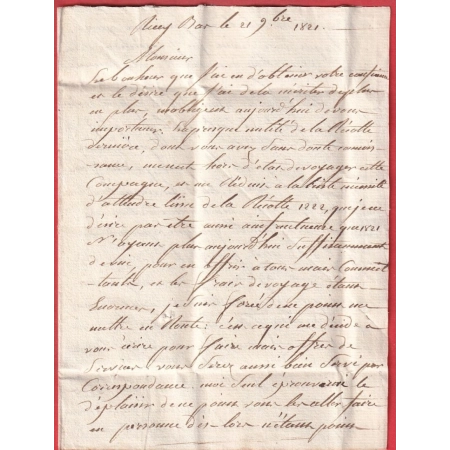 Ricey Bas le 21 9.bre 1821.
Monsieur
Le bonheur que j'ai eu d'obtenir votre confiance
et le désir que j'ai de la mériter de plus
en plus m'obligent aujourd'hui de vous
importuner. La presque nullité de la Récolte
dernière, dont vous avez sans doute connais-
sance, me met hors d'état de voyager cette
Campagne, et me Réduit à la triste
d'attendre celle de la Récolte 1822, que je
désire pas être aussi infructueuse que 1821
N'ayant plus aujourd'hui suffisamment
de vin pour en offrir à tous mes Commet-
tants, et les frais de voyage étant
énormes, je suis forcé de ne point me
mettre en Route: c'est ce qui me décide à
vous écrire pour faire mes offres de
Services vous serez aussi bien Servi par
Correspondance. moi seul éprouverai le
déplaisir de ne point vous les aller faire
en personne dès-lors n'étant point